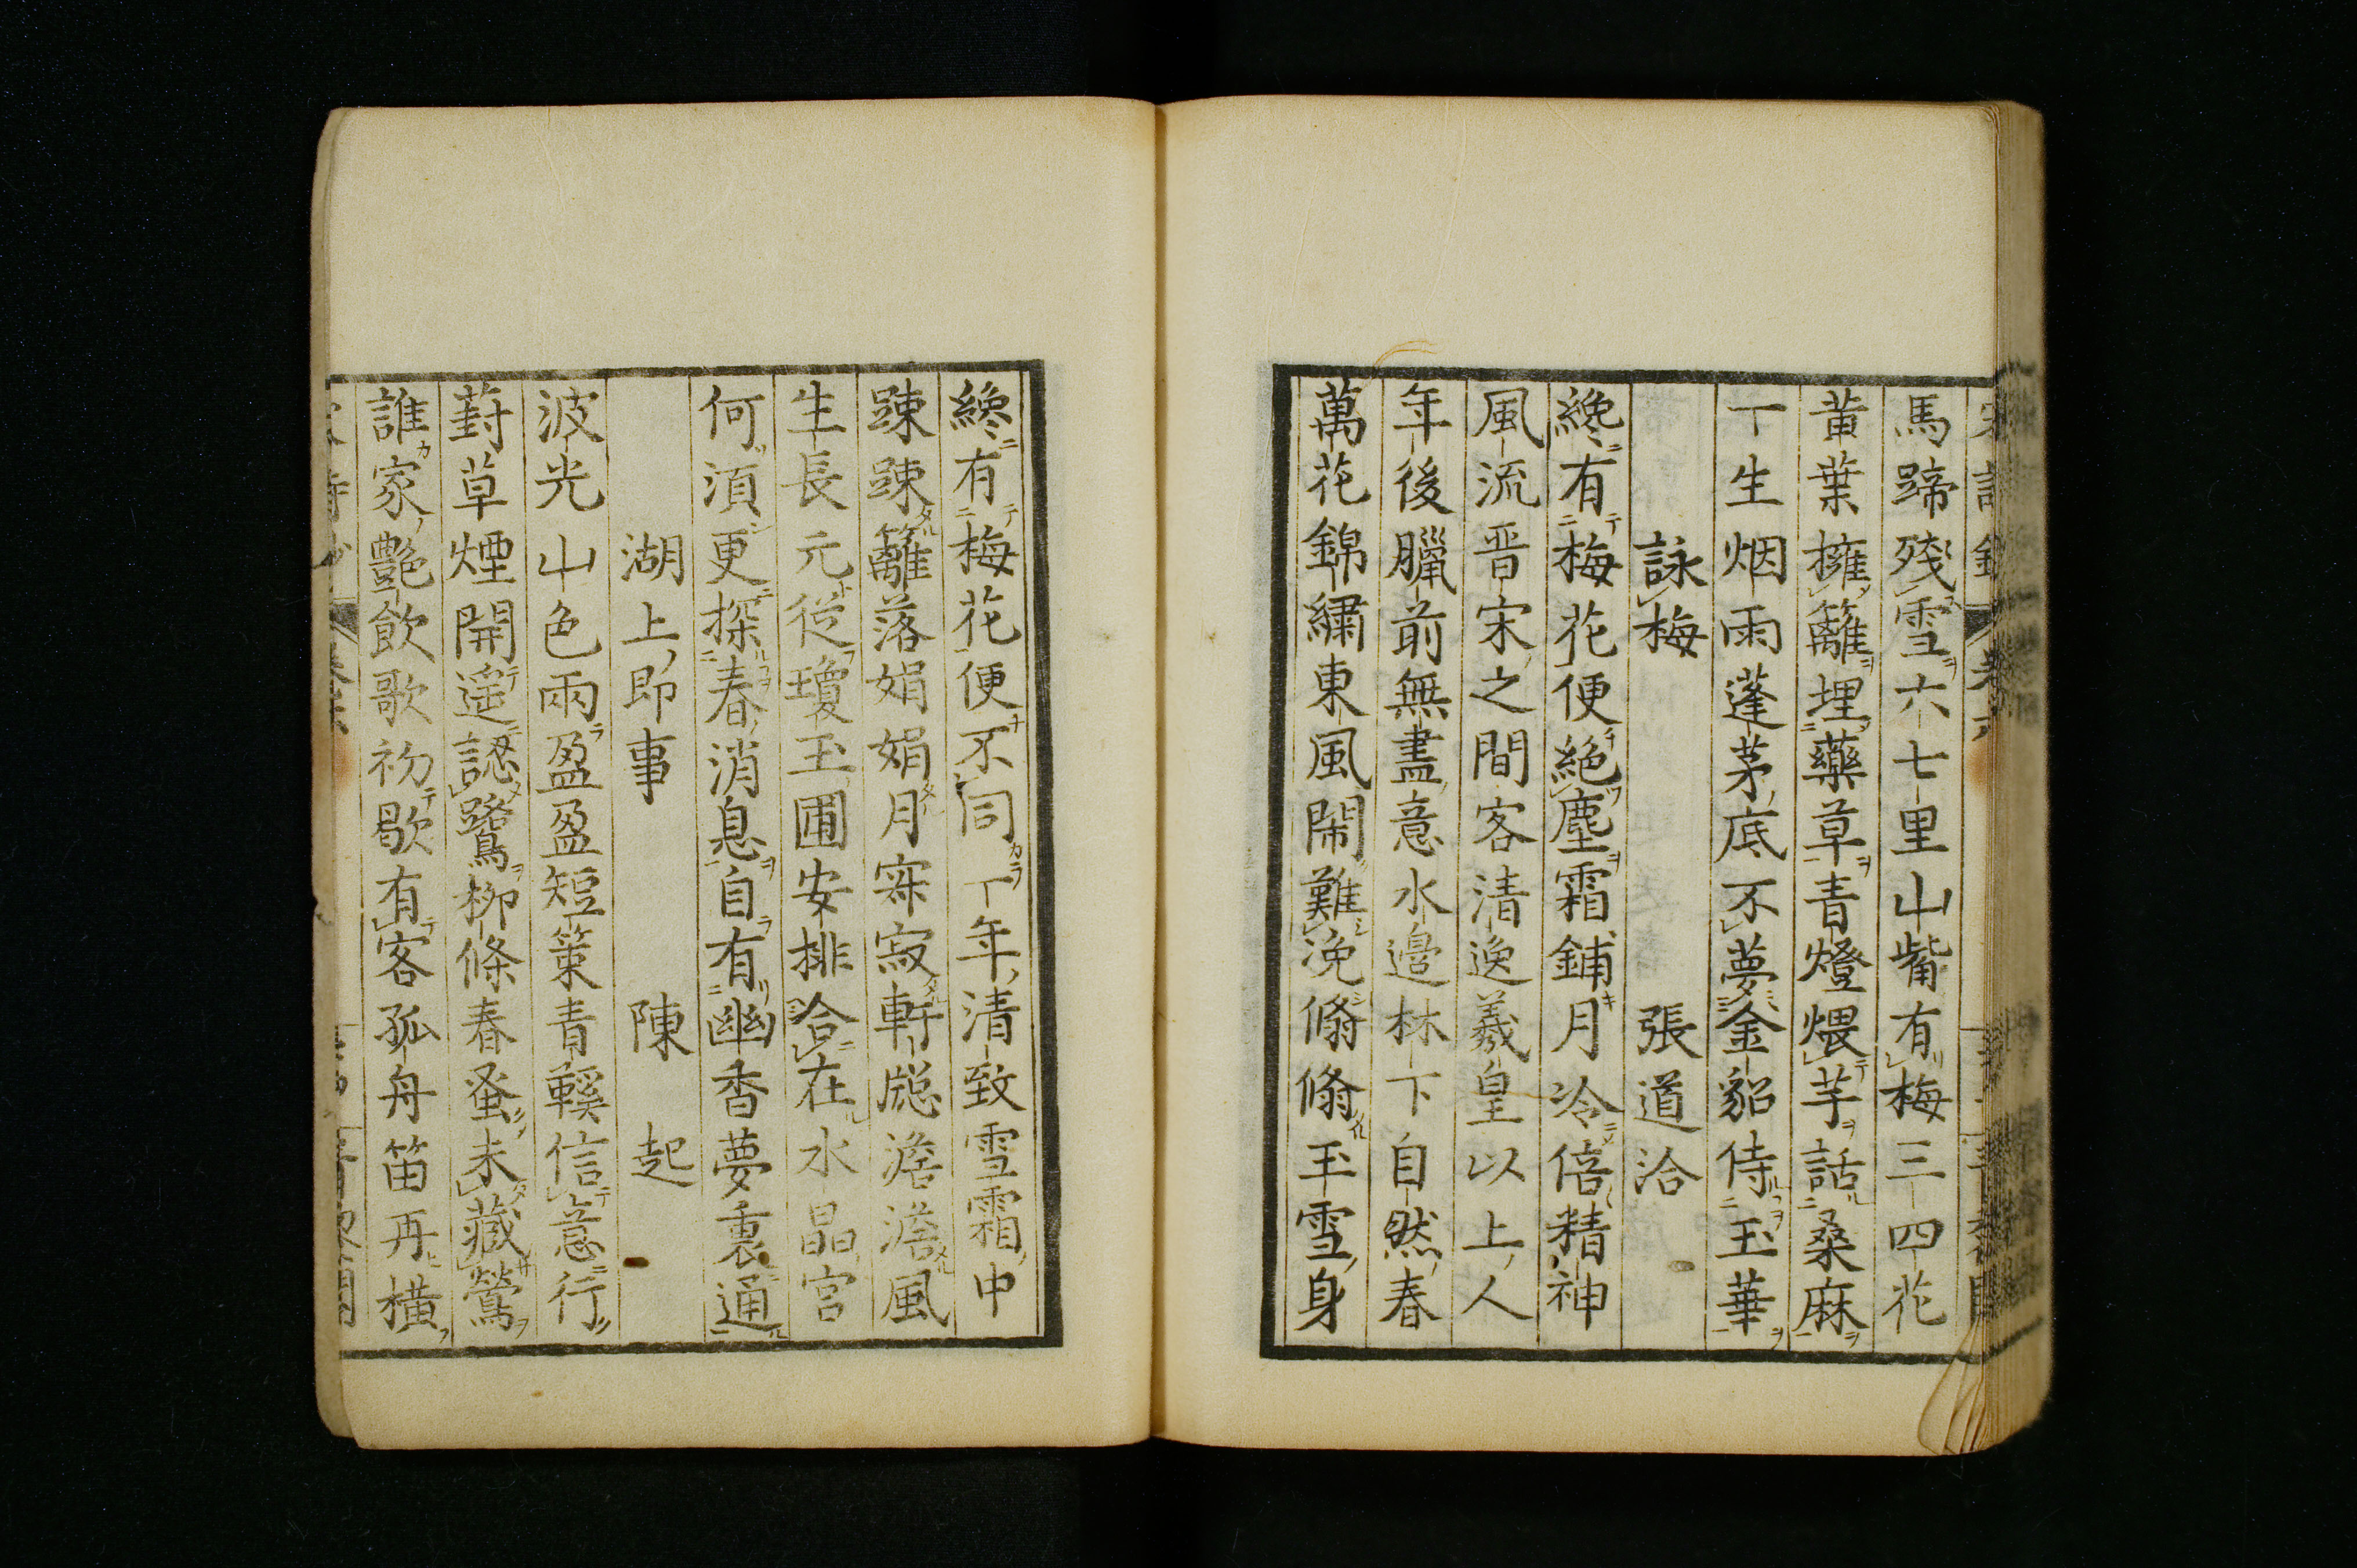 馬蹄殘雪六七里山觜有梅三四花
黃葉擁籬埋藥草青燈煨芋話桑麻
一生烟雨蓬茅底不夢金貂侍玉華
詠梅 張道洽
纔有梅花便絕塵霜鋪月冷倍精神
風流晋宋之間客清逸羲皇以上人
年後臘前無盡意水邊林下自然春
萬花錦繡東風鬧難浼翛翛玉雪身
纔有梅花便不同一年清致雪霜中
踈踈籬落娟娟月寂寂軒牕澹澹風
生長元從瓊玉圃安排合在水晶宮
何須更探春消息自有幽香夢裏通
湖上即事 陳起
波光山色兩盈盈短策青鞵信意行
葑草煙開遥認鷺柳條春蚤未藏鶯
誰家艷飲歌初歇有客孤舟笛再橫